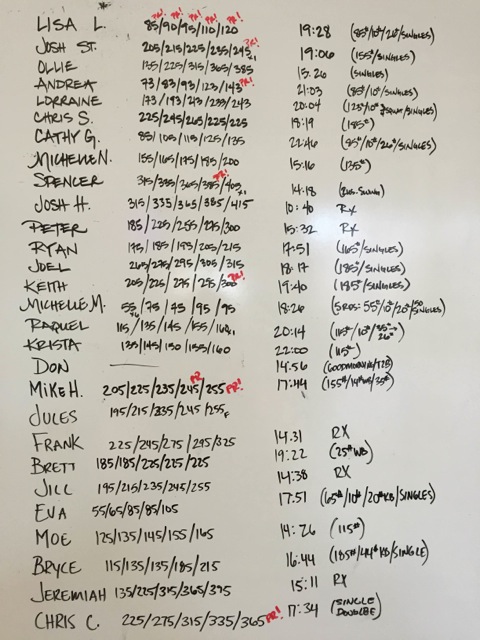 LISA L. 85/90/95/110/120 PR! PR! PR! PR! PR! 19:28 (85#/10#/26#/SINGLES)
JOSH ST. 205/215/225/235/245 PR! x1 19:06 (155#/SINGLES)
OLLIE 155/225/315/365/385 15:26 (SINGLES)
ANDREA 73/83/93/123/143 PR! 21:03 (85#/10#/SINGLES)
LORRAINE 173/193/213/233/243 20:04 (125#/10#/SINGLES)
CHRIS S. 225/245/265/225/225 18:19 (185#)
CATHY G. 85/105/115/125/135 22:46 (95#/10#/26#/SINGLES)
MICHELLE N. 155/165/175/185/200 15:16 (135#)
SPENCER 315/335/365/385/405 PR! x1 14:18
JOSH H. 315/335/365/385/415 10:40 RX
PETER 185/225/255/275/300 15:32 RX
RYAN 175/185/195/205/215 17:51 (165#/SINGLES)
JOEL 265/275/295/305/315 18:17 (185#/SINGLES)
KEITH 205/225/275/255/300 PR! 19:40 (185#/SINGLES)
MICHELLE M. 55/75/95/95/95 18:26 (5RDS: 55#/10#/20#/150 SINGLES)
RAQUEL 115/135/145/155/160 x1 20:14 (115#/10#/35#→26#)
KRISTA 135/145/150/155/160 22:00 (115#)
DON — 14:56 (GOODMORNING/T2B)
MIKE H. 205/225/235/245/255 PR PR! 17:44 (155#/14#WB/35#)
JULES 195/215/235/245/255F
FRANK 225/245/275/295/325 14:31 RX
BRETT 185/185/225/225/225 19:22 (25# WB)
JILL 195/215/235/245/255 14:38 RX
EVA 55/65/85/85/105 17:51 (65#/10#/20#KB/SINGLES)
MOE 125/135/145/155/165 14:26 (115#)
BRYCE 115/135/135/185/215 16:44 (185#/44#KB/SINGLE)
JEREMIAH 135/225/315/365/395 15:11 RX
CHRIS C. 225/275/315/335/365 PR! 17:34 (SINGLE DOUBLE)